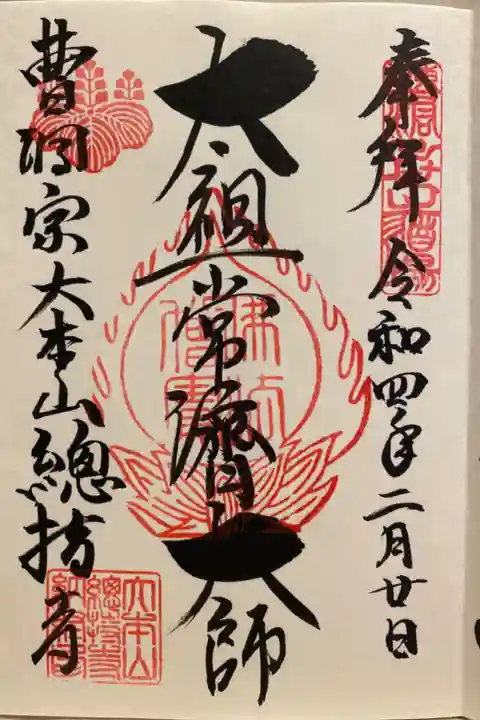 奉拝 令和四年二月廿日
太祖常済大師
曹洞宗大本山總持寺
佛法僧寶
大本山總持寺